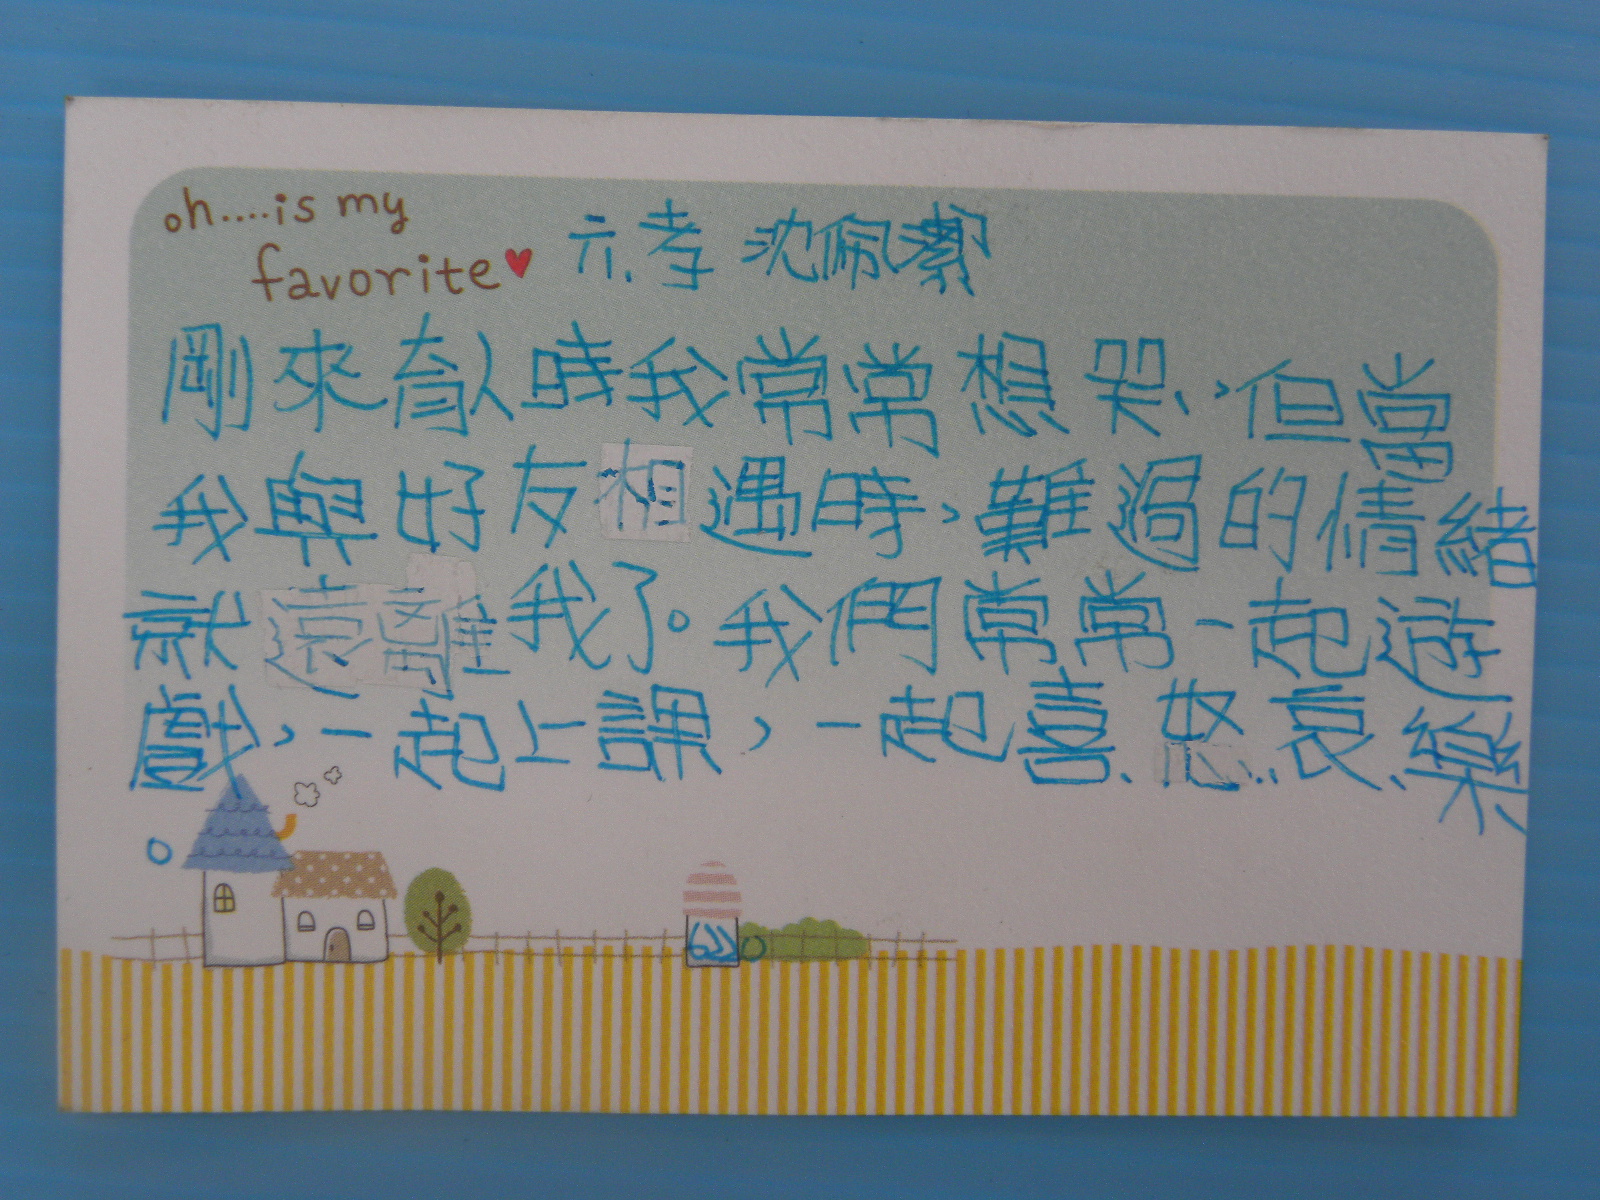 oh....is my
favorite
六孝 沈佩潔
剛來育人時我常常想哭,但當
我與好友相遇時,難過的情緒
就遠離我了。我們常常一起遊
戲,一起上課,一起喜、怒、哀、樂
。